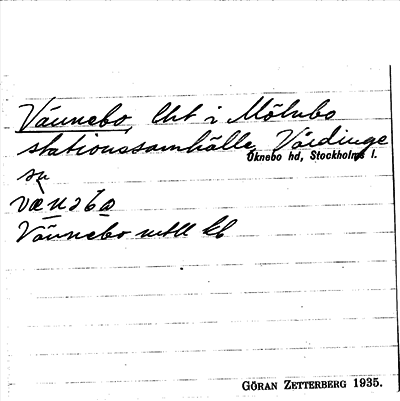 Vännebo, lht i Mölnbo
stationssamhälle, Vårdinge
Öknebo hd, Stockholms l.
sn
Vännebo
GÖRAN ZETTERBERG 1935.